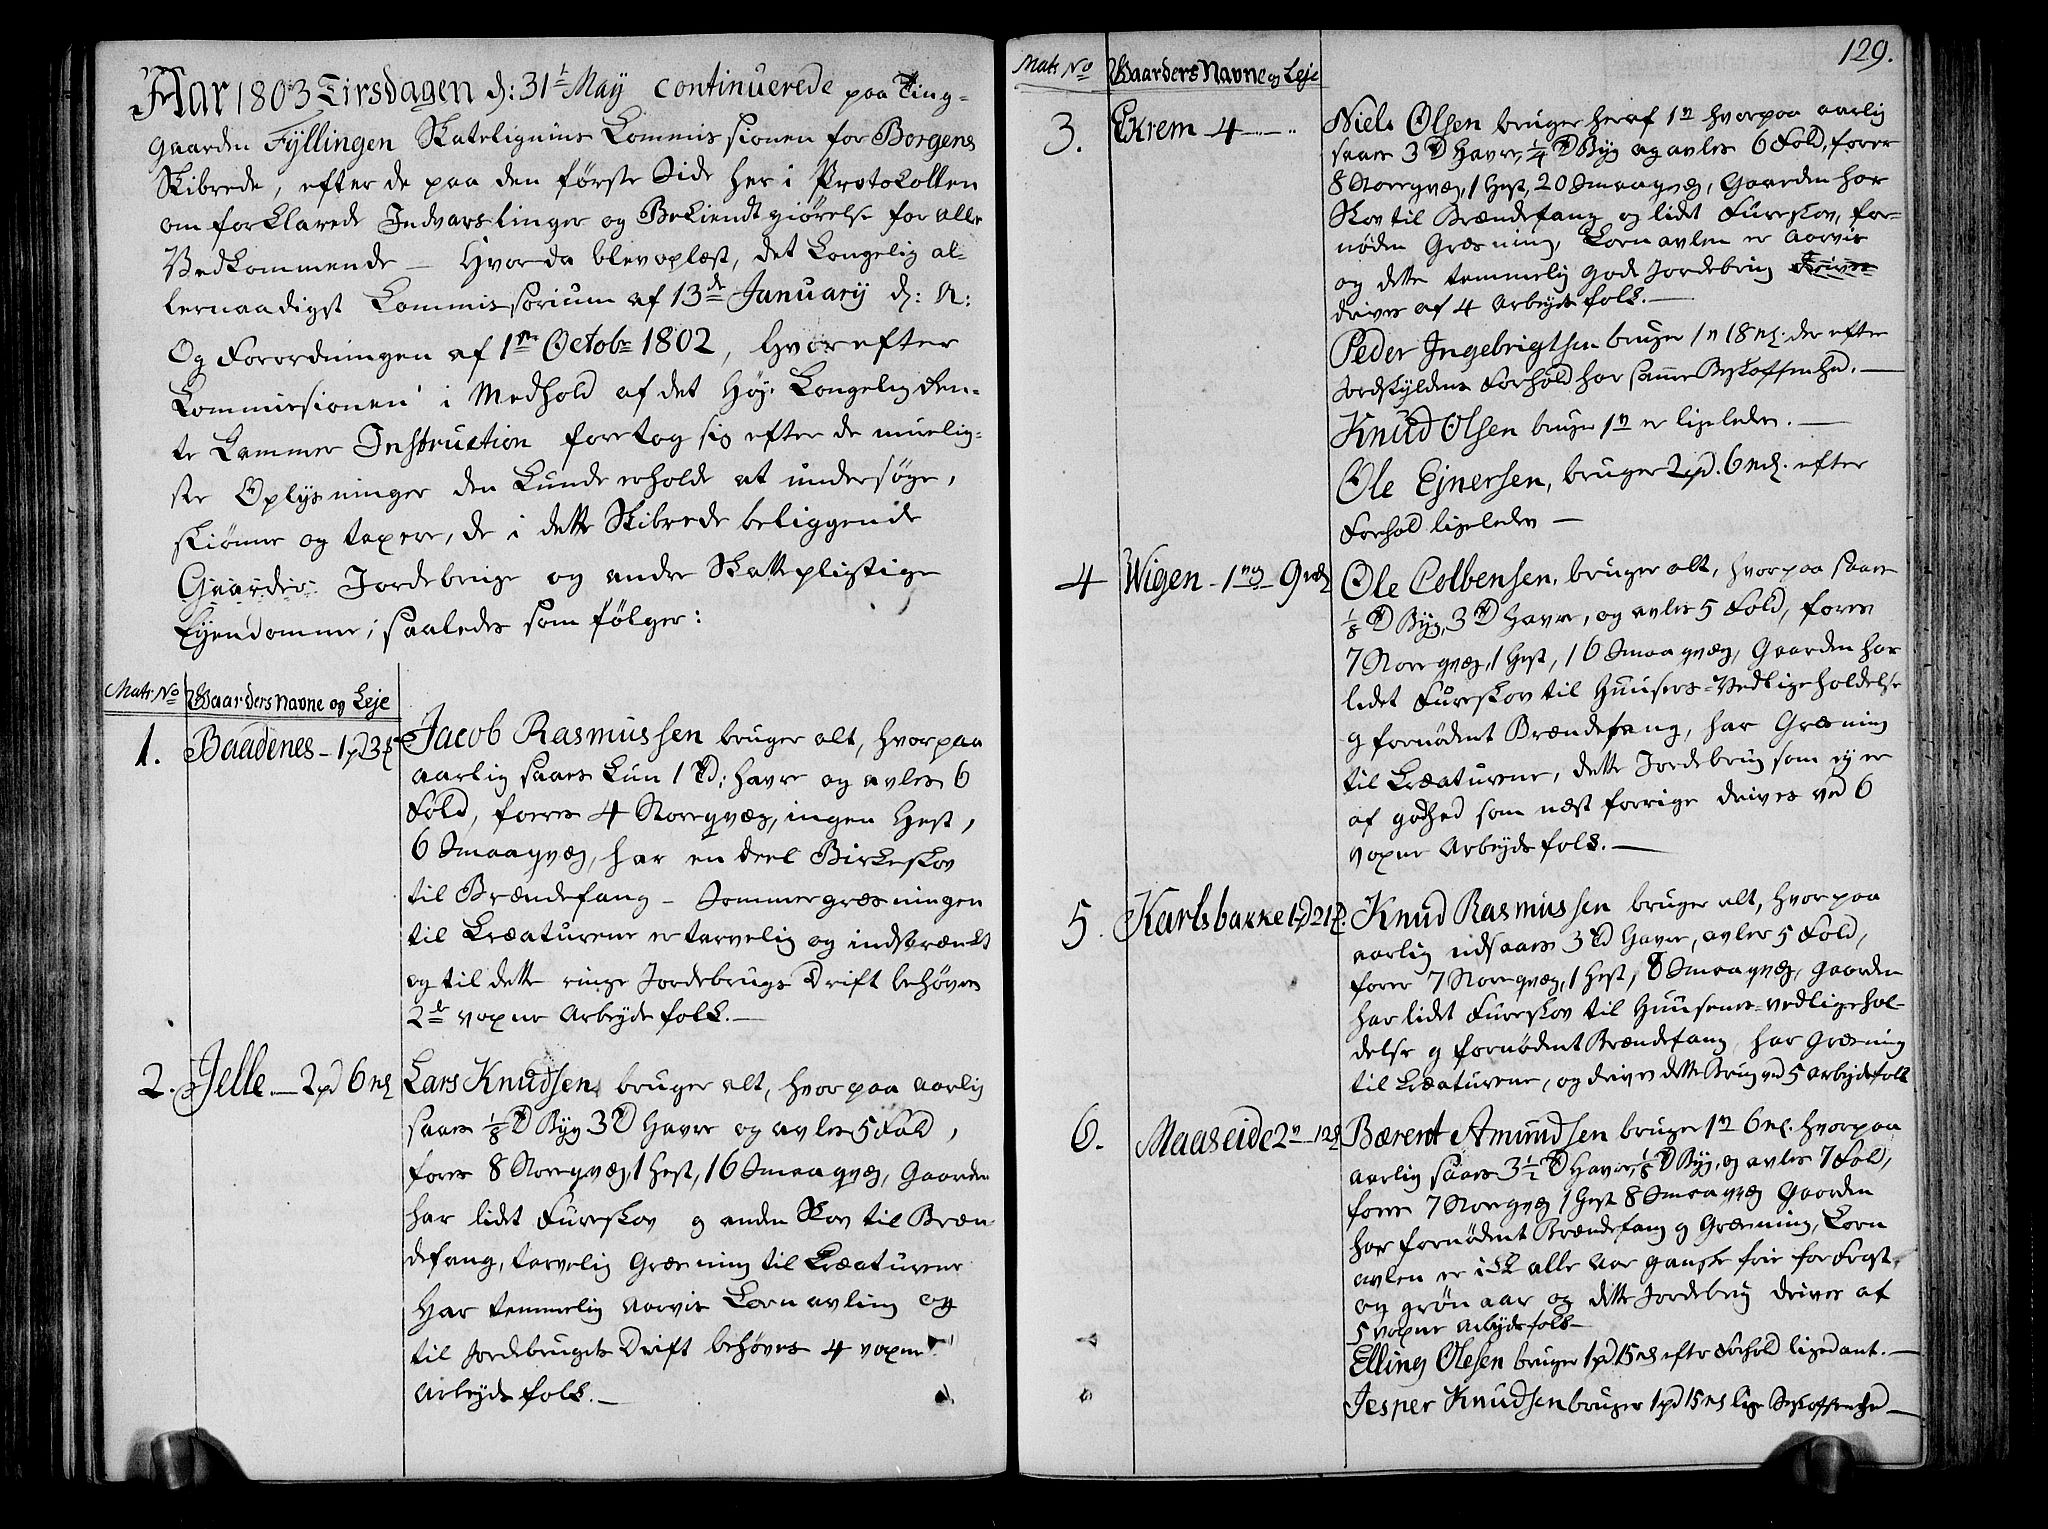 Aar 1803 Tirsdagen d: 31t May continuerede paa Ting-
gaarden Fÿllingen Skatelignins Commissionen for Borgens
Skibrede, efter de paa den første Side her i Protokollen
om forklarede Indvarslinger og Bekiendtgiørelse for alle
Vedkommende — Hvorda blev oplæst, det Kongelig al-
lernaadigst Commissorium af 13de Januarÿ d: A:
Og Forordningen af 1ste Octobr 1802, hvorefter
Commissionen i Medhold af det Høy. Kongelig Ren-
te Kammer Instruction foretog sig efter de muelig-
ste Oplÿsninger den kunde erholde at undersøge,
skiønne og taxere, de i dette Skibrede beliggende
Gaarder Jordebruge og andre Skattepligtige
Eyendomme, saaledes som følger:
Matr No Gaarders Navne og Leje
1. Baadenes – 1pd 3 Jacob Rasmussen bruger alt, hvorpaa
aarlig saaes kun 1 Td: Havre og avles 6
Fold, foeres 4 Storeqvæg, ingen Hest,
6 Smaaqvæg, har en deel Birkeskov
til Brændefang – Sommergræsningen
til Kræaturene er tarvelig og indskrænkt
og til dette ringe Jordebrugs Drift behøves
2de voxne Arbeyds folk. —
2. Jelle – 2pd 6 mk Lars Knudsen, bruger alt, hvorpaa aarlig
saaes 1/8 Td Byg 3 Td Havre og avles 5 Fold,
fores 8 Storeqvæg, 1 Hest, 16 Smaaqvæg, Gaarden
har lidet Fureskov og anden Skov til Bræn-
defang, tarvelig Græsning til Kræaturene
Har temmelig aarvis Kornavling og
til Jordebrugets Drift behøves 4 voxne
Arbeyds folk. —
129.
Matr No Gaarders Navne og Leje
3. Ekrem 4 Niels Olsen bruger heraf 1 v hvorpaa aarlig
saaes 3 Td Havre, 1/4 Td Byg og avles 6 Fold, forer
8 Storeqvæg, 1 Hest, 20 Smaaqvæg, Gaarden har
Skov til Brændefang og lidet Fureskov, for-
nøden Græsning, Kornavlen er aarvis
og dette temmelig gode Jordebrug drives
drives af 4 Arbeyds folk. —
Peder Ingebrigtsen bruger 1 v 18 mk. der efter
Jordskyldens Forhold har samme Beskaffenhed. —
Knud Olsen bruger 1 v er ligeleden. —
Ole Ejnersen, bruger 2 pd. 6 mk. efter
Forhold ligeleden —
4 Wigen – 1 v 9 mk Ole Colbensen, bruger alt, hvorpaa saaes
1/8 Td Byg, 3 Td Havre, og avles 5 Fold, fores
7 Storeqvæg, 1 Hest, 16 Smaaqvæg, Gaarden har
lidet Fureskov til Huusers Vedligeholdelse
og fornødent Brændefang, har Græsning
til Kræaturene, dette Jordebrug som ey er
af godhed som næst forrige drives ved 6
voxne Arbeyds folk. —
5. Karlsbakke 1pd 21 Knud Rasmussen bruger alt, hvorpaa
aarlig udsaaes 3 Td Havre, avles 5 Fold,
forer 7 Storeqvæg, 1 Hest, 8 Smaaqvæg, Gaarden
har lidet Fureskov til Huusenes vedligehol-
delse og fornødent Brændefang, har Græsning
til Kræaturene, og drives dette Brug ved 5 arbeydsfolk
6. Maaseide 2 v 12 mk Bærent Amundsen bruger 1 v 6 mk. hvorpaa
aarlig saaes 3 1/2 Td Havre, 1/8 Td Byg, og avles 7 Fold,
forer 7 Storeqvæg 1 Hest 8 Smaaqvæg Gaarden
har fornødent Brændefang og Græsning, Korn
avlen er ikke alle Aar ganske frie for Frost,
og grøn aar og dette Jordebrug drives af
5 voxne Arbeydsfolk —
Elling Olesen bruger 1pd. 15 mk efter Forhold ligedant. —
Jesper Knudsen bruger 1 pd 15 mk lige Beskaffenhed —